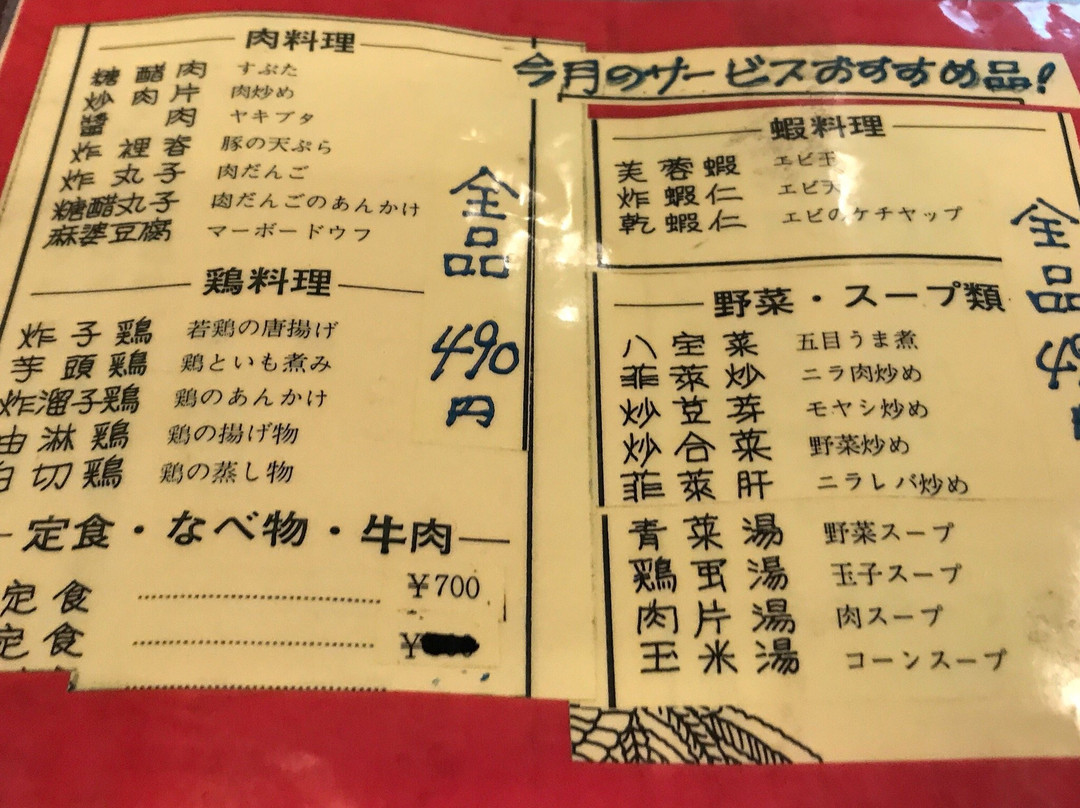 肉料理
糖醋肉 すぶた
炒肉片 肉炒め
醬肉 ヤキブタ
炸裡脊 豚の天ぷら
炸丸子 肉だんご
糖醋丸子 肉だんごのあんかけ
麻婆豆腐 マーボードウフ
全品
490
円
鶏料理
炸子鶏 若鶏の唐揚げ
芋頭鶏 鶏といも煮み
炸溜子鶏 鶏のあんかけ
由淋鶏 鶏の揚げ物
白切鶏 鶏の蒸し物
定食・なべ物・牛肉
定食 ¥700
定食 ¥
今月のサービスおすすめ品!
蝦料理
芙蓉蝦 エビ玉
炸蝦仁 エビ天
乾蝦仁 エビのケチヤップ
全
品
野菜・スープ類
八宝菜 五目うま煮
韮菜炒 ニラ肉炒め
炒豆芽 モヤシ炒め
炒合菜 野菜炒め
韮菜肝 ニラレバ炒め
青菜湯 野菜スープ
鶏蛋湯 玉子スープ
肉片湯 肉スープ
玉米湯 コーンスープ